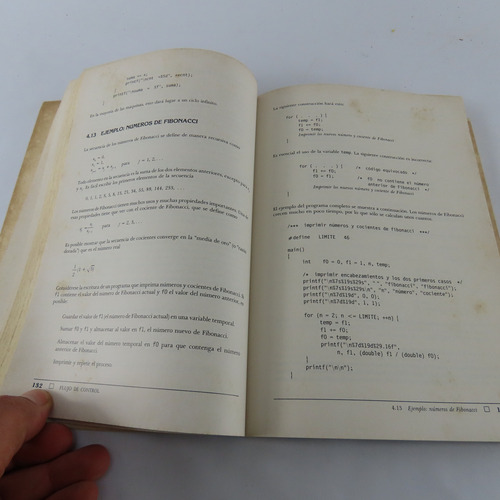 sume += x;
printf("\n%d  %f", npcnt,
printf("\nsume = %f", sume);
}
En la mayoría de las máquinas, esto dará lugar a un ciclo infinito.
4.13 EJEMPLO: NÚMEROS DE FIBONACCI
La secuencia de los números de Fibonacci se define de manera recursiva como
para i = 1, 2, ...
Todo elemento en la secuencia es la suma de los dos elementos anteriores, excepto para
Es fácil escribir los primeros elementos de la secuencia
0, 1, 1, 2, 3, 5, 8, 13, 21, 34, 55, 89, 144, 233, ...
Los números de Fibonacci tienen muchos usos y muchas propiedades importantes. Una de
esas propiedades tiene que ver con el cociente de Fibonacci, que se define como
para i = 2, 3, ...
Es posible mostrar que la secuencia de cocientes converge en la "media de oro" (o "sección
dorada"), que es el número real
Considérese la escritura de un programa que imprima números y cocientes de Fibonacci. Si
f1 contiene el valor del número de Fibonacci actual y f0 el valor del número anterior, es
posible:
Guardar el valor de f1 (el número de Fibonacci actual) en una variable temporal.
Sumar f0 y f1 y almacenar el valor en f1, el número nuevo de Fibonacci.
Almacenar el valor del número temporal en f0 para que contenga el número
anterior de Fibonacci.
Imprimir y repetir el proceso.
132 □ FLUJO DE CONTROL
La siguiente construcción hará esto:
for (
temp = f1;
f1 += f0;
f0 = temp;
Imprimir los nuevos número y cociente de Fibonacci
}
Es esencial el uso de la variable temp. La siguiente construcción es incorrecta:
for ( . . . . . ) {   /* código equivocado */
f1 += f0;
f0 = f1;   /* f0 no contiene el número
anterior de Fibonacci */
Imprimir los nuevos número y cociente de Fibonacci
}
El ejemplo del programa completo se muestra a continuación. Los números de Fibonacci
crecen mucho en poco tiempo, por lo que sólo se calculan unos cuantos.
/*** imprimir números y cocientes de Fibonacci ***/
#define LIMITE 46
main()
{
int f0 = 0, f1 = 1, n, temp;
/* imprimir encabezamientos y los dos primeros casos */
printf("\n%7s%19s%29s\n", " ", "Fibonacci", "Fibonacci");
printf("\n%7s%19s%29s\n", "n", "número", "cociente");
printf("\n%7d%19d", 0, 0);
printf("\n%7d%19d", 1, 1);
for (n = 2; n <= LIMITE; ++n) {
temp = f1;
f1 += f0;
f0 = temp;
printf("\n%7d%19d%29.16f",
n, f1, (double) f1 / (double) f0);
}
printf("\n\n");
}
4.13 Ejemplo: números de Fibonacci □ 1